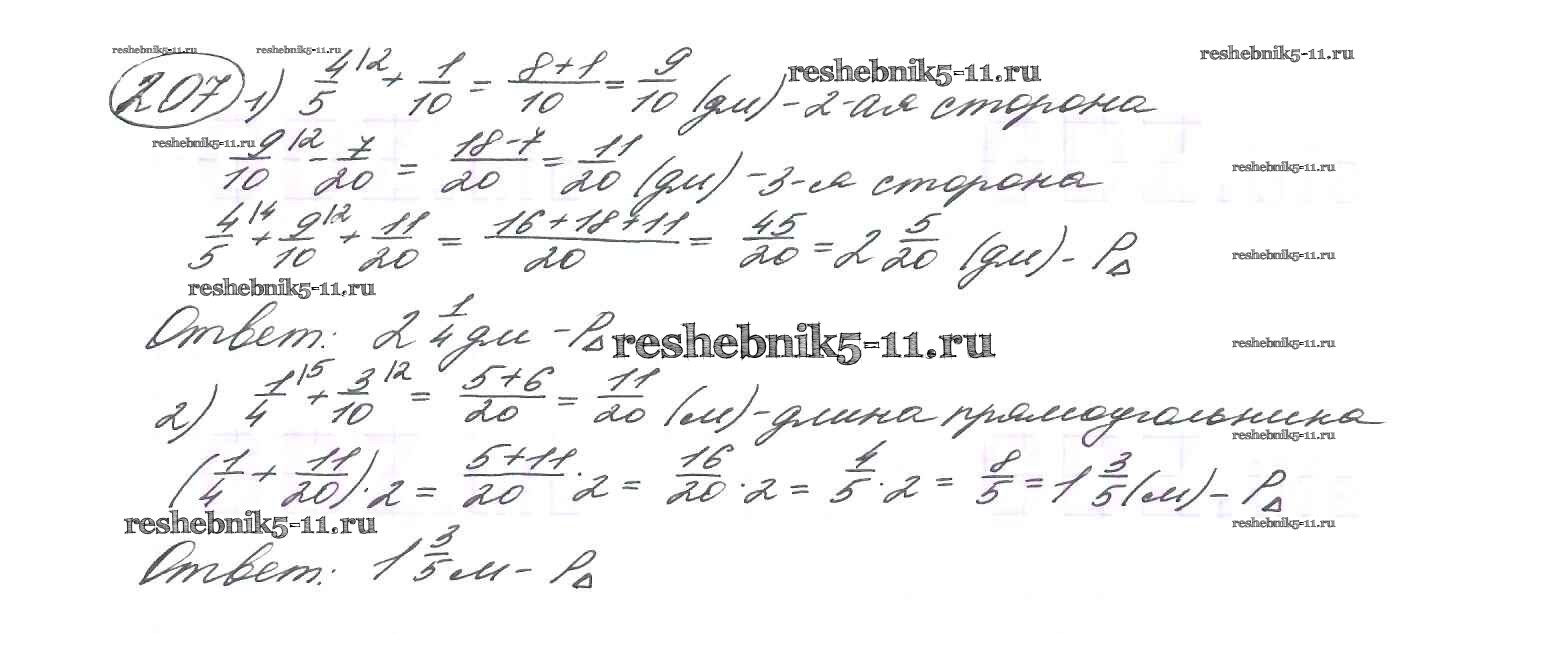 reshebnik5-11.ru reshebnik5-11.ru reshebnik5-11.ru
207 1) 4/5|2 + 1/10 = 8+1/10 = 9/10 (дм) - 2-ая сторона
reshebnik5-11.ru
reshebnik5-11.ru
9/10|2 - 7/20 = 18-7/20 = 11/20 (дм) - 3-я сторона
reshebnik5-11.ru
4/5|4 + 9/10|2 + 11/20 = 16+18+11/20 = 45/20 = 2 5/20 (дм) - P△
reshebnik5-11.ru
reshebnik5-11.ru
Ответ: 2 1/4 дм - P△
reshebnik5-11.ru
reshebnik5-11.ru
2) 1/4|5 + 3/10|2 = 5+6/20 = 11/20 (м) - длина прямоугольника
reshebnik5-11.ru
(1/4 + 11/20) · 2 = 5+11/20 · 2 = 16/20 · 2 = 4/5 · 2 = 8/5 = 1 3/5 (м) - P△
reshebnik5-11.ru
reshebnik5-11.ru
Ответ: 1 3/5 м - P△